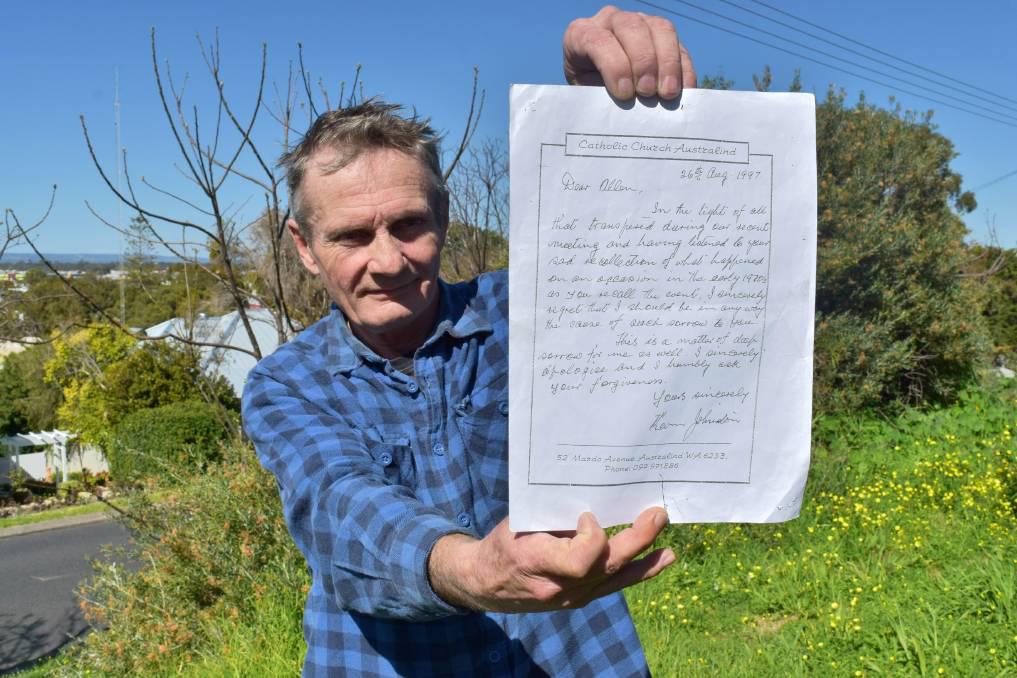 Catholic Church Australind
26th Aug. 1997
Dear Allen,
In the light of all
that transpired during our recent
meeting and having listened to your
sad recollection of what happened
on an occasion in the early 1970s
as you recall the event, I sincerely
regret that I should be in any way
the cause of such sorrow to you.
This is a matter of deep
sorrow for me as well. I sincerely
apologise and I humbly ask
your forgiveness.
Yours sincerely
Kevin Johnston
52 Mardo Avenue Australind W.A. 6233.
Phone: 097 971886